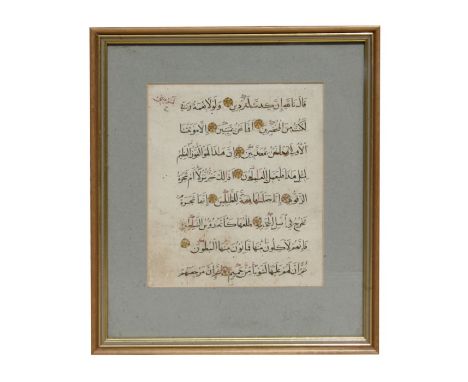 قال تالله إن كدت لتردين ولولا نعمة ربي
لكنت من المحضرين أفما نحن بميتين إلا موتتنا
الأولى وما نحن بمعذبين إن هذا لهو الفوز العظيم
لمثل هذا فليعمل العاملون أذلك خير نزلا أم شجرة
الزقوم إنا جعلناها فتنة للظالمين إنها شجرة
تخرج في أصل الجحيم طلعها كأنه رءوس الشياطين
فإنهم لآكلون منها فمالئون منها البطون
ثم إن لهم عليها لشوبا من حميم ثم إن مرجعهم